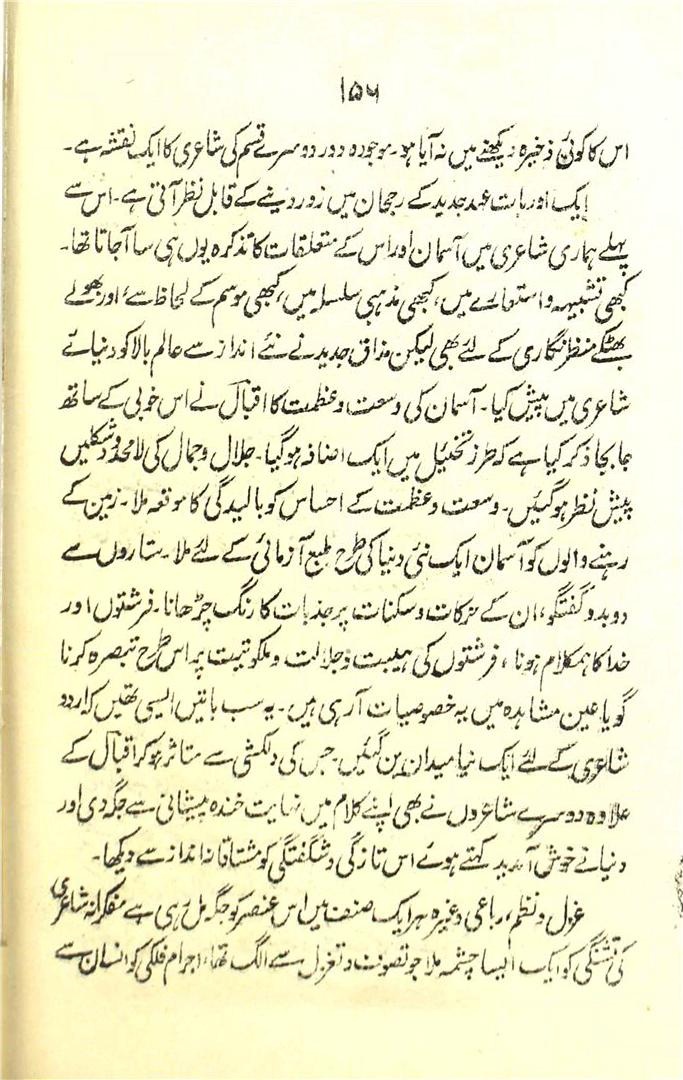 ۱۵۶
اس کا کوئی ذخیرہ دیکھنے میں نہ آیا ہو۔ موجودہ دور دوسرے قسم کی شاعری کا ایک نقشہ ہے۔
ایک اور بات عہد جدید کے رجحان میں زور دینے کے قابل نظر آتی ہے۔ اس سے
پہلے ہماری شاعری میں آسمان اور اس کے متعلقات کا تذکرہ یوں ہی سا آجاتا تھا۔
کبھی تشبیہہ و استعارے میں، کبھی مذہبی سلسلہ میں، کبھی موسم کے لحاظ سے، اور بھولے
بھٹکے منظر نگاری کے لئے بھی لیکن مذاق جدید نے نئے انداز سے عالم بالا کو دنیائے
شاعری میں پیش کیا۔ آسمان کی وسعت و عظمت کا اقبال نے اس خوبی کے ساتھ
جا بجا ذکر کیا ہے کہ طرز تخئیل میں ایک اضافہ ہو گیا۔ جلال و جمال کی لامحدود شکلیں
پیش نظر ہو گئیں۔ وسعت و عظمت کے احساس کو بالیدگی کا موقعہ ملا۔ زمین کے
رہنے والوں کو آسمان ایک نئی دنیا کی طرح طبع آزمائی کے لئے ملا۔ ستاروں سے
دوبدو گفتگو، ان کے حرکات و سکنات پر جذبات کا رنگ چڑھانا۔ فرشتوں اور
خدا کا ہمکلام ہونا، فرشتوں کی ہیبت و جلالت و ملکوتیت پر اس طرح تبصرہ کرنا
گویا عین مشاہدہ میں یہ خصوصیات آ رہی ہیں۔ یہ سب باتیں ایسی تھیں کہ اردو
شاعری کے لئے ایک نیا میدان بن گئیں جس کی دلکشی سے متاثر ہو کر اقبال کے
علاوہ دوسرے شاعروں نے بھی اپنے کلام میں نہایت خندہ پیشانی سے جگہ دی اور
دنیا نے خوش آمدید کہتے ہوئے اس تازگی و شگفتگی کو مشتاقانہ انداز سے دیکھا۔
غزل و نظم، رباعی وغیرہ ہر ایک صنف میں اس عنصر کو جگہ مل رہی ہے مفکرانہ شاعری
کی تشنگی کو ایک ایسا چشمہ ملا جو تصوف و تغزل سے الگ تھا، اجرام فلکی کو انسان سے